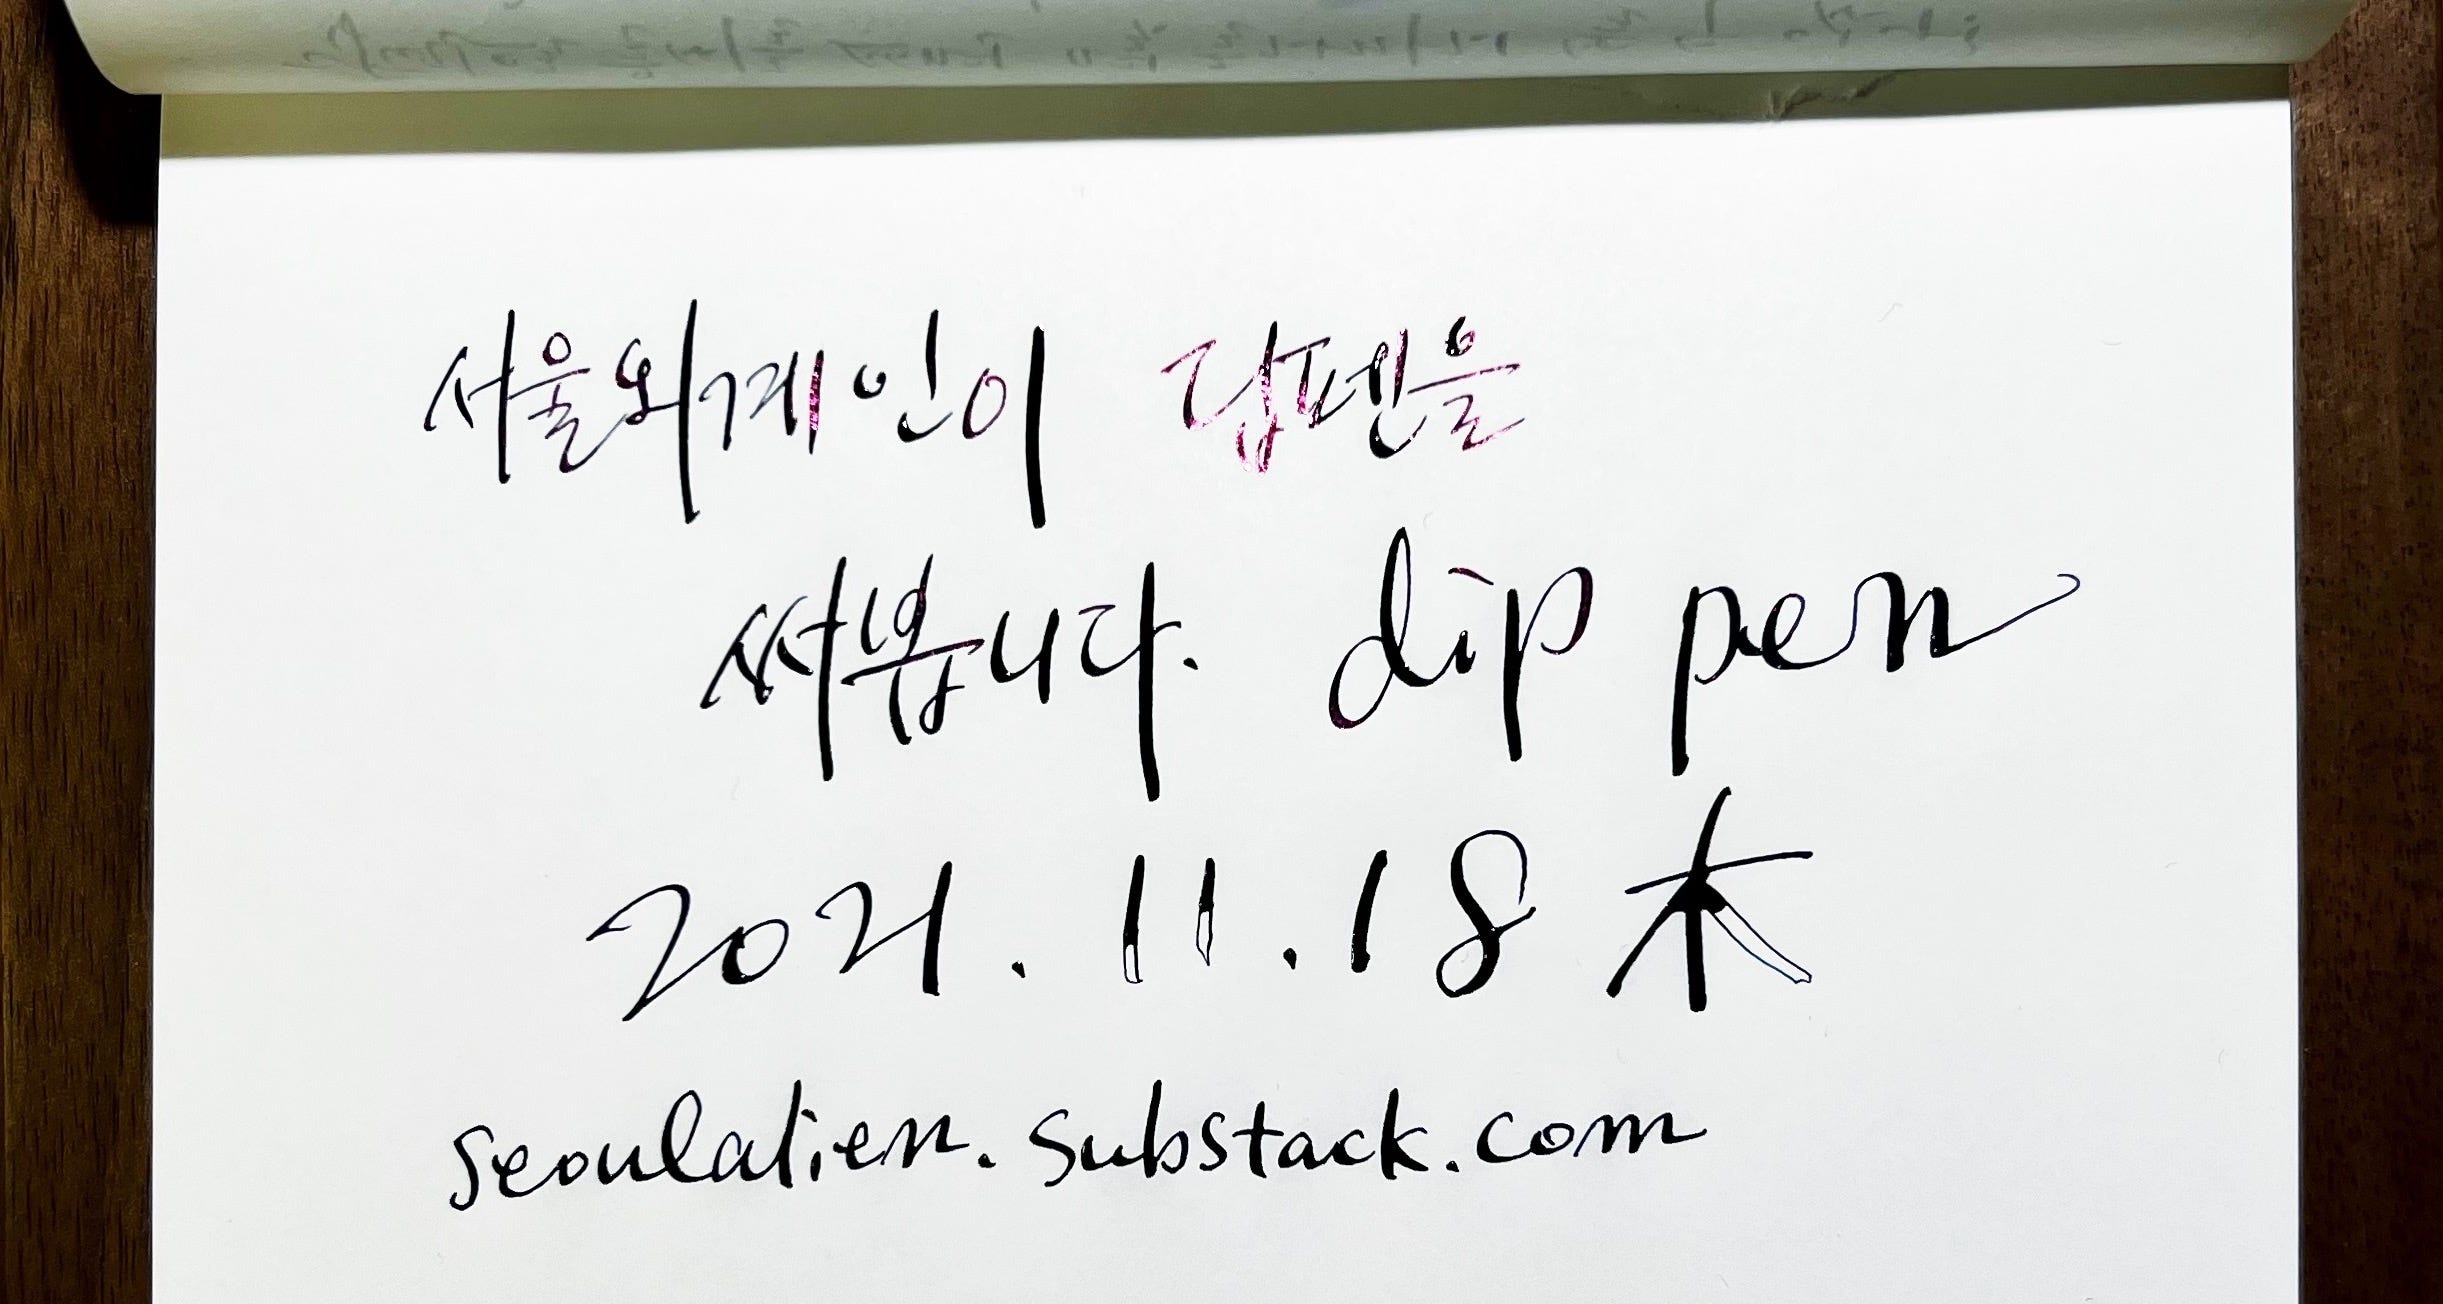 서울외계인이 딥펜을
써봅니다. dip pen
2021. 11. 18 木
seoulalien.substack.com